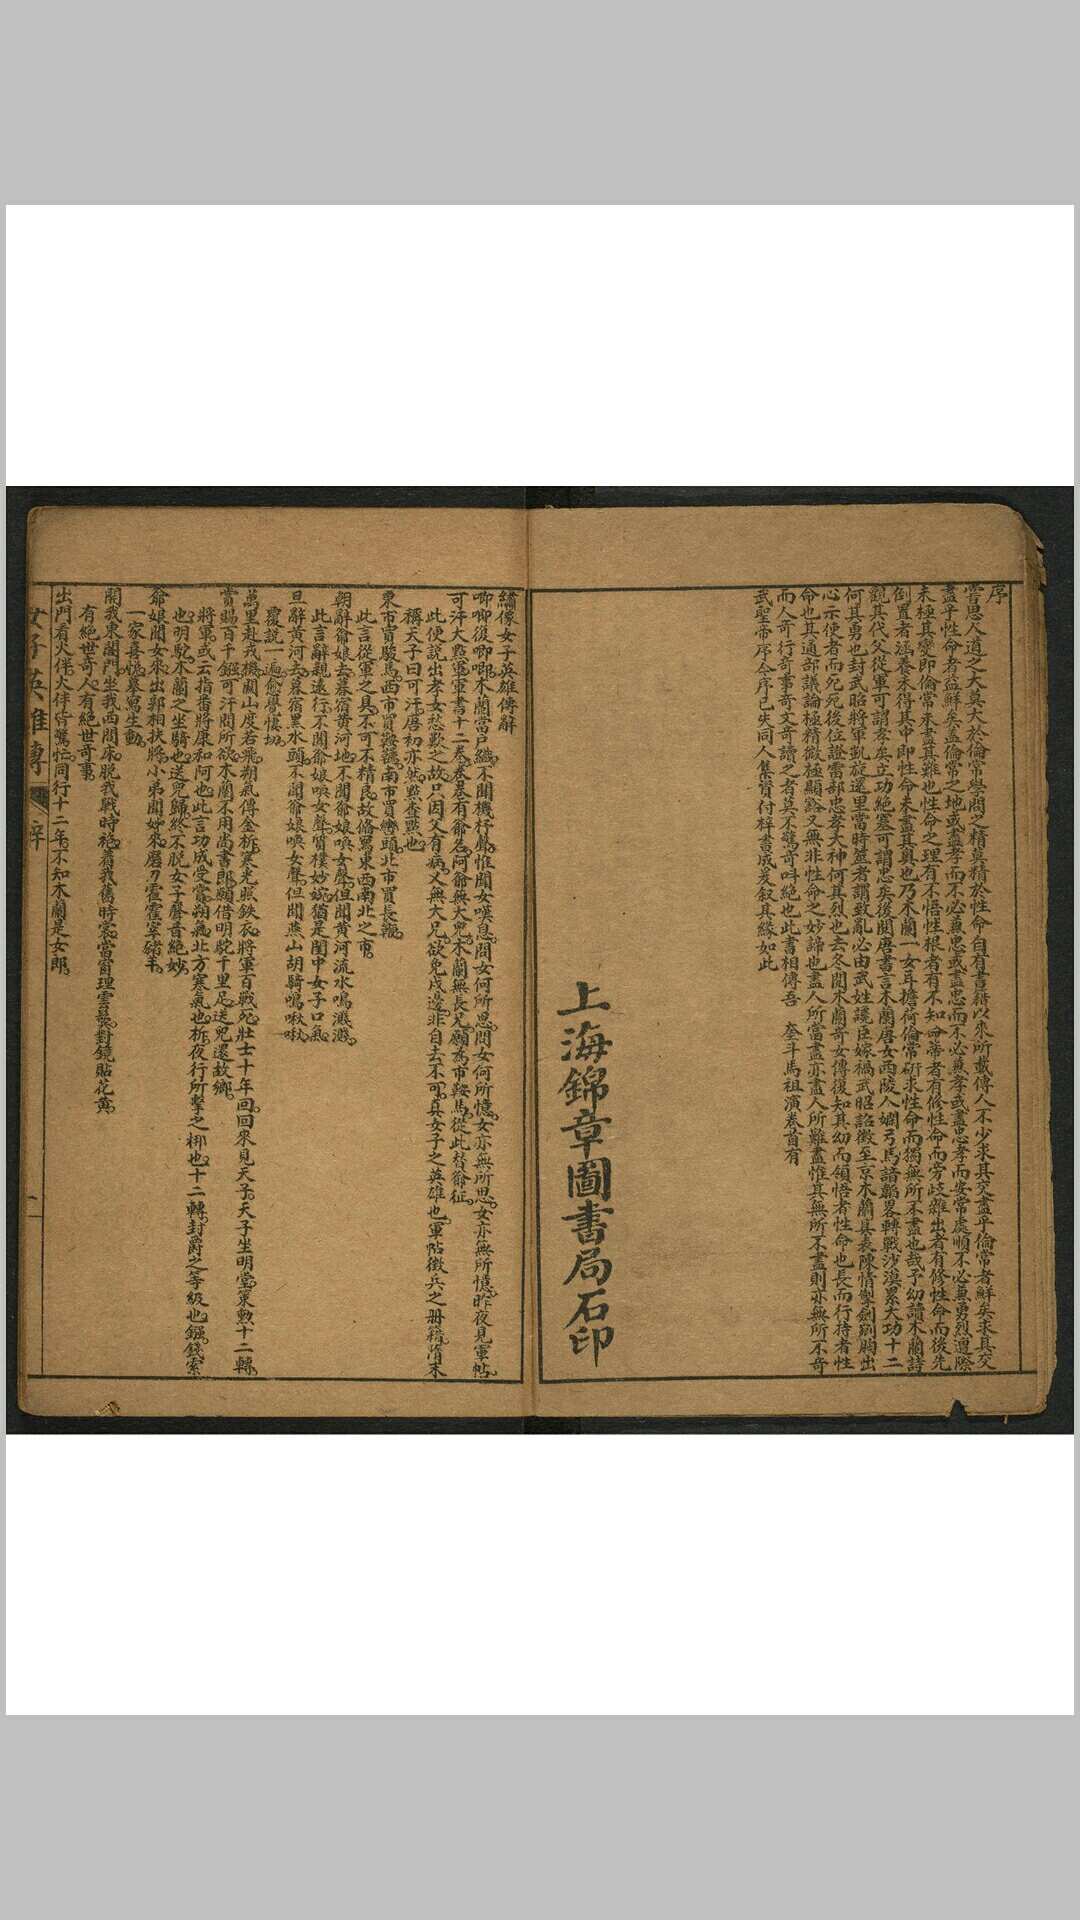 序
嘗思人道之大莫大於倫常學問之精莫精於性命自有書籍以來所載傳人不少求其交盡乎倫常者鮮矣求其交
盡乎性命者益鮮矣蓋倫常之地或盡孝而不必兼忠或盡忠而不必兼孝或盡忠孝而安常處順不必兼勇烈遭際
未極其變即倫常未盡其難也性命之理有不悟性根者有不知命蒂者有修性命而旁歧雜出者有修性命而後先
倒置者涵養未得其中即性命未盡其奧也乃木蘭一女耳擔荷倫常研求性命而獨無所不盡也哉予幼讀木蘭詩
觀其代父從軍可謂孝矣立功絕塞可謂忠矣後閱唐書言木蘭唐女西陵人嫻弓馬諳韜畧轉戰沙漠累大功十二
何其勇也封武昭將軍凱旋還里當時筮者謂致亂必由武姓讒臣嫁禍武昭詔徵至京木蘭具表陳情掣劍剜胸出
心示使者而死死後位證雷部忠孝大神何其烈也去冬閱木蘭奇女傳復知其幼而領悟者性命也長而行持者性
命也其通部議論極精微極顯豁又無非性命之妙諦也盡人所當盡亦盡人所難盡惟其無所不盡則亦無所不奇
而人奇行奇事奇文奇讀之者莫不驚奇叫絕也此書相傳吾 奎斗馬祖演卷首有
武聖帝序今序已失同人集資付梓書成爰叙其緣如此
上海錦章圖書局石印
繡像女子英雄傳辭
唧唧復唧唧木蘭當戶織不聞機杼聲惟聞女嘆息問女何所思問女何所憶女亦無所思女亦無所憶昨夜見軍帖
可汗大點軍軍書十二卷卷卷有爺名阿爺無大兒木蘭無長兄願為市鞍馬從此替爺征
此便說出孝女愁歎之故只因父有病又無大兄欲免戍邊非自去不可真女子之英雄也軍帖徵兵之册籍隋末
稱天子曰可汗唐初亦然點查點也
東市買駿馬西市買鞍韉南市買轡頭北市買長鞭
此言從軍之具不可不精良故脩罵東西南北之市
朝辭爺娘去暮宿黃河地不聞爺娘喚女聲但聞黃河流水鳴濺濺
此言辭親遠行不聞爺娘喚女聲質樸妙婉猶是閨中女子口氣
旦辭黃河去暮宿黑水頭不聞爺娘喚女聲但聞燕山胡騎鳴啾啾
覆說一遍愈覺悽切
萬里赴戎機關山度若飛朔氣傳金柝寒光照鉄衣將軍百戰死壯士十年回回來見天子天子坐明堂策勲十二轉
賞賜百千鏹可汗問所欲木蘭不用尚書郎願借明駝千里足送兒還故鄉
將軍或云指番將康和阿也此言功成受賞朔氣北方寒氣也柝夜行所擊之梆也十二轉封爵之等級也鏹錢索
也明駝木蘭之坐騎也送兒歸終不脫女子聲音絕妙
爺娘聞女來出郭相扶將小弟聞姊來磨刀霍霍宰豬羊
一家喜愧摹寫生動
開我東閣門坐我西間床脫我戰時袍着我舊時裳當窗理雲鬢對鏡貼花黃
有絕世奇人有絕世奇事
出門看火伴火伴皆驚忙同行十二年不知木蘭是女郎
女子英雄傳 辭 一